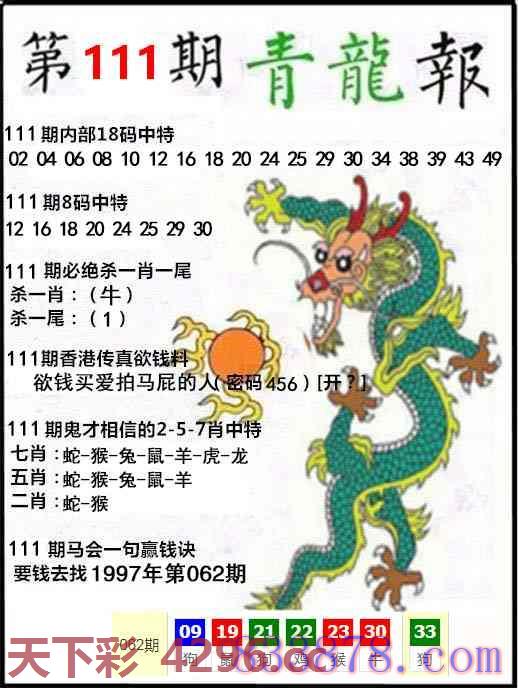 第111期青龍報
111期内部18码中特
02 04 06 08 10 12 16 18 20 24 25 29 30 34 38 39 43 49
111期8码中特
12 16 18 20 24 25 29 30
111期必绝杀一肖一尾
杀一肖：（牛）
杀一尾：（1）
111期香港传真欲钱料
欲钱买爱拍马屁的人(密码456)[开？]
111期鬼才相信的2-5-7肖中特
七肖：蛇-猴-兔-鼠-羊-虎-龙
五肖：蛇-猴-兔-鼠-羊
二肖：蛇-猴
111期马会一句赢钱诀
要钱去找1997年第062期
062期 09 19 21 22 23 30 33
狗 鼠 狗 鸡 猴 牛 狗
天下彩 4296.cc